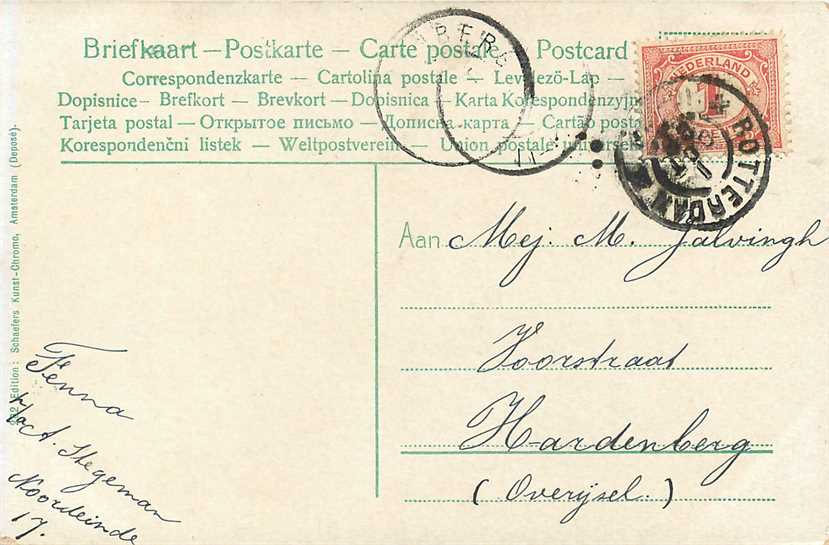 Briefkaart – Postkarte – Carte postale Postcard
Correspondenzkarte – Cartolina postale – Levelezö-Lap –
Dopisnice – Brefkort – Brevkort – Dopisnica – Karta Korespondenzyjn
Tarjeta postal – Открытое письмо – Дописна карта – Cartão posta
Korespondenční listek – Weltpostverein – Union postale universel
NEDERLAND
1
ROTTERDAM
Aan Mej. M. Jalvingh
Voorstraat
Hardenberg
(Overijsel.)
Edition: Schaefers Kunst-Chromo, Amsterdam (Deposé).
Fenna
p/a A. Stegeman
Noordeinde
17.